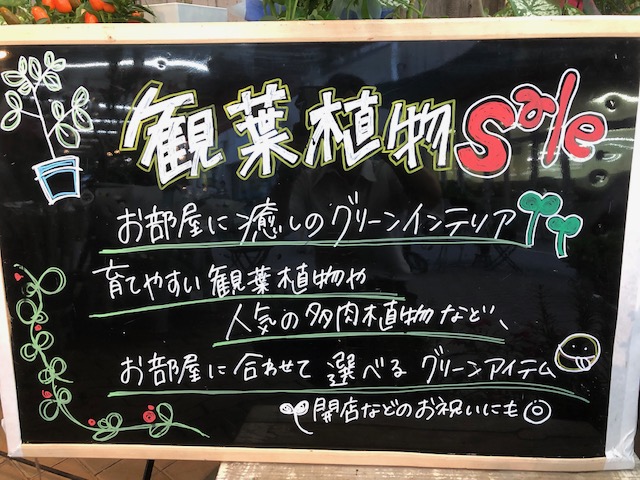 観葉植物Sale
お部屋に癒しのグリーンインテリア
育てやすい観葉植物や
人気の多肉植物など、
お部屋に合わせて選べるグリーンアイテム
開店などのお祝いにも◎